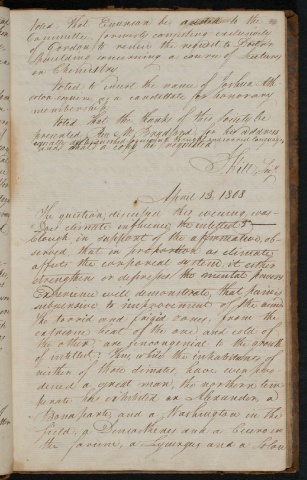 Voted, that Emerson be added to the
Committee formerly consisting exclusively
of Gordon to renew the request to Doctor
Spaulding concerning a course of Lectures
on Chemistry.
Voted to insert the name of Joshua
as a candidate for honorary
membership.
Voted that the thanks of this Society be
presented Mr. Bradford for his address
and that a copy be requested.
Secy
April 13. 1803
The question discussed this evening was
Does climate influence the intellect?
Clough, in support of the affirmative, ob-
served that in proportion as climate
affects the corporeal system, it either
strengthens or depresses the mental powers
Experience will demonstrate, that
subversive of improvement of the mind
the torrid and frigid zones, from the
extreme heat of the one and cold of
the other are uncongenial to the growth
of intellect; thus while the inhabitants of
neither of those climates have ever pro-
duced a great man, the northern tem-
perate has exhibited an Alexander, a
Bonaparte, and a Washington in the
field, a Demosthenes and a Cicero in
the forum, a Lycurgus and a Solon